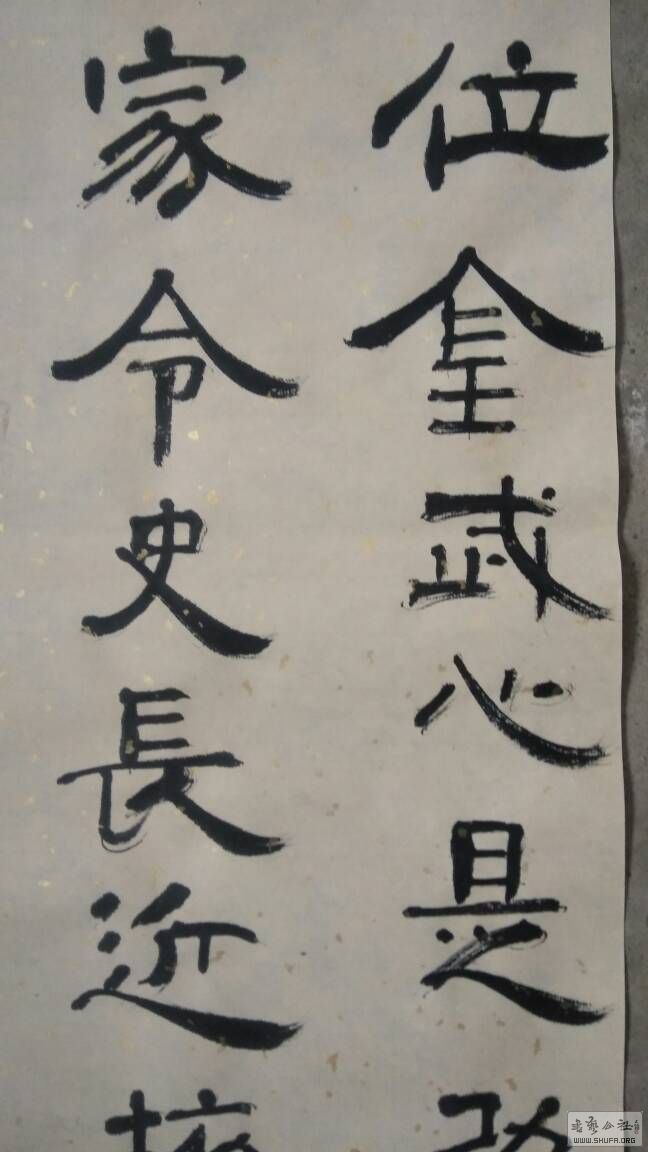 位武心是
家令史長近
書藝公社
WWW.SHUFA.ORG